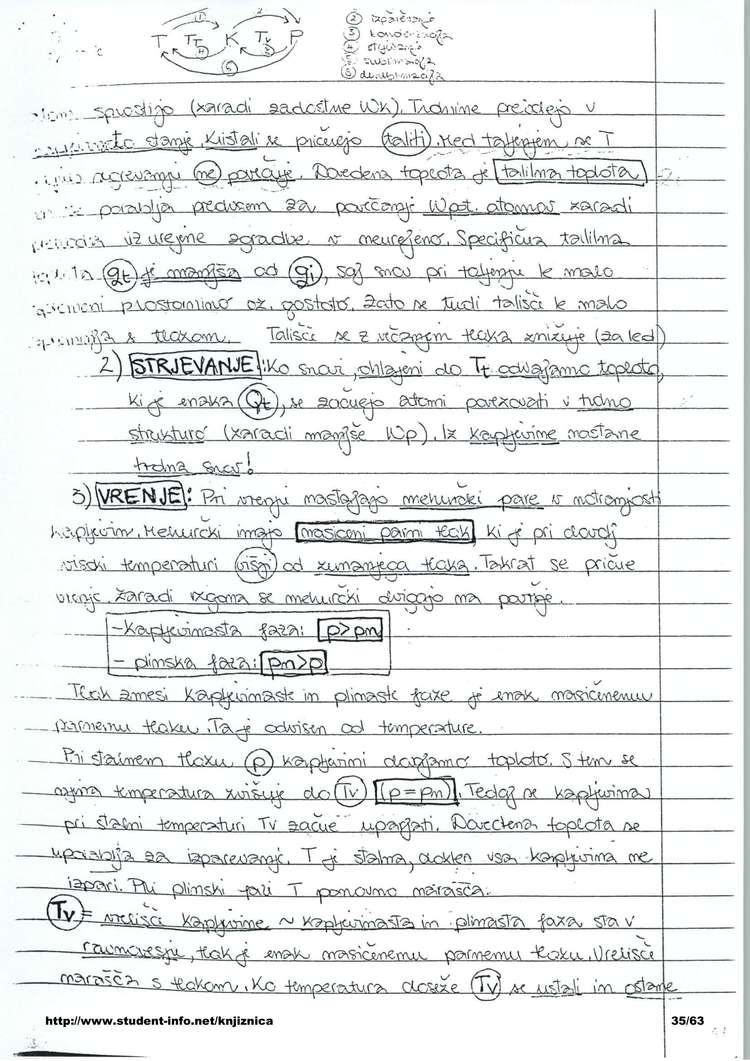 ① T T_T K T_V P
④ ③
⑥
② izparevanje
③ kondenzacija
④ strjevanje
5 sublimacija
⑥ desublimacija
sprostijo (zaradi zadostne Wk). Trdnine preidejo v
stanje. Kristali se pričnejo taliti. Med taljenjem se T
segrevanju ne povečuje. Dovedena toplota je talilna toplota
in se porablja predvsem za povečanje Wpot. atomov zaradi
iz urejene zgradbe v neurejeno. Specifična talilna
qt je manjša od qi, saj snov pri taljenju le malo
spremeni prostornino oz. gostoto. Zato se tudi tališče le malo
spreminja s tlakom. Tališče se z večanjem tlaka znižuje (za led)
2) STRJEVANJE: Ko snovi, ohlajeni do Tt odvajamo toploto,
ki je enaka Qt, se začnejo atomi povezovati v trdno
strukturo (zaradi manjše Wp). Iz kapljevine nastane
trdna snov!
3) VRENJE: Pri vrenju nastajajo mehurčki pare v notranjosti
kapljevin. Mehurčki imajo nasičeni parni tlak, ki je pri dovolj
visoki temperaturi višji od zunanjega tlaka. Takrat se prične
vrenje. Zaradi vzgona se mehurčki dvigajo na površje.
-kapljevinasta faza: p>pn
- plinska faza: pn>p
Tlak zmesi kapljevinaste in plinaste faze je enak nasičenemu
parnemu tlaku. Ta je odvisen od temperature.
Pri stalnem tlaku p kapljevini dovajamo toploto. S tem se
njena temperatura zvišuje do Tv (p=pn). Tedaj se kapljevina
pri stalni temperaturi Tv začne uparjati. Dovedena toplota se
uporablja za izparevanje. T je stalna, dokler vsa kapljevina ne
izpari. Pri plinski fazi T ponovno narašča.
Tv = vrelišče kapljevine ~ kapljevinasta in plinasta faza sta v
ravnovesju, tlak je enak nasičenemu parnemu tlaku. Vrelišče
narašča s tlakom. Ko temperatura doseže Tv se ustali in ostane
http://www.student-info.net/knjiznica 35/63